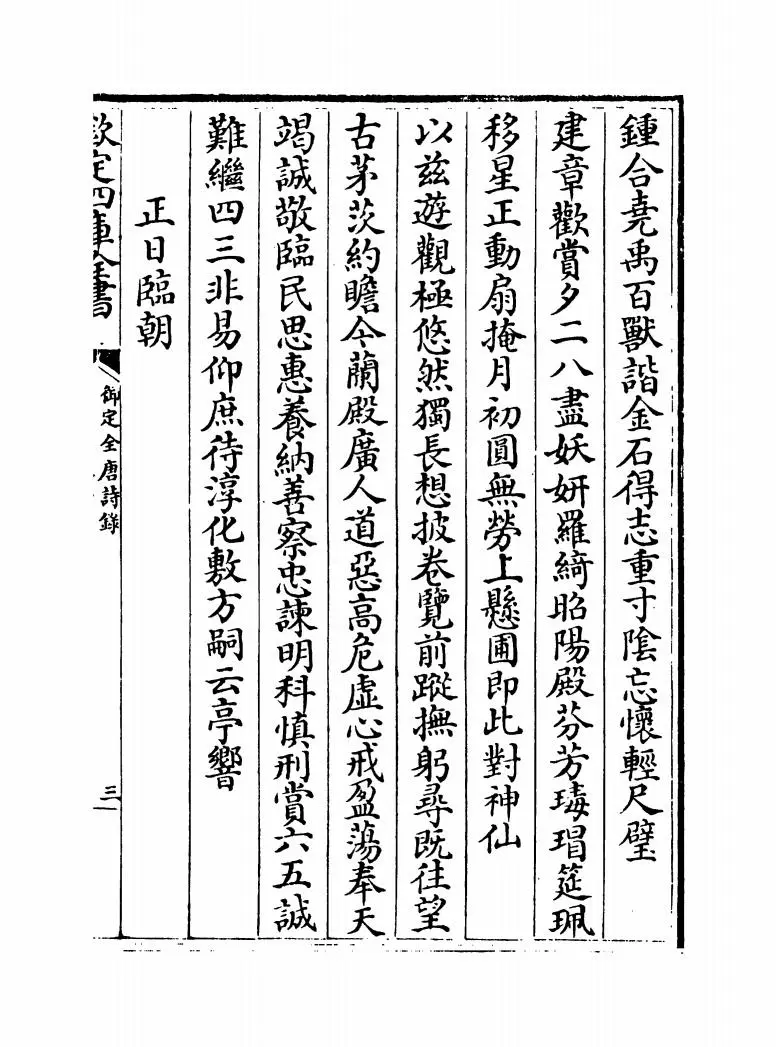 鍾合堯禹百獸諧金石得志重寸陰忘懷輕尺璧
建章歡賞夕二八盡妖妍羅綺昭陽殿芬芳瑇瑁筵珮
移星正動扇掩月初圓無勞上懸圃即此對神仙
以兹遊觀極悠然獨長想披卷覽前蹤撫躬尋既往望
古茅茨約瞻今蘭殿廣人道惡高危虛心戒盈蕩奉天
竭誠敬臨民思惠養納善察忠諫明科慎刑賞六五誠
難繼四三非易仰庶待淳化敷方嗣云亭響
正日臨朝
欽定四庫全書
御定全唐詩錄
三